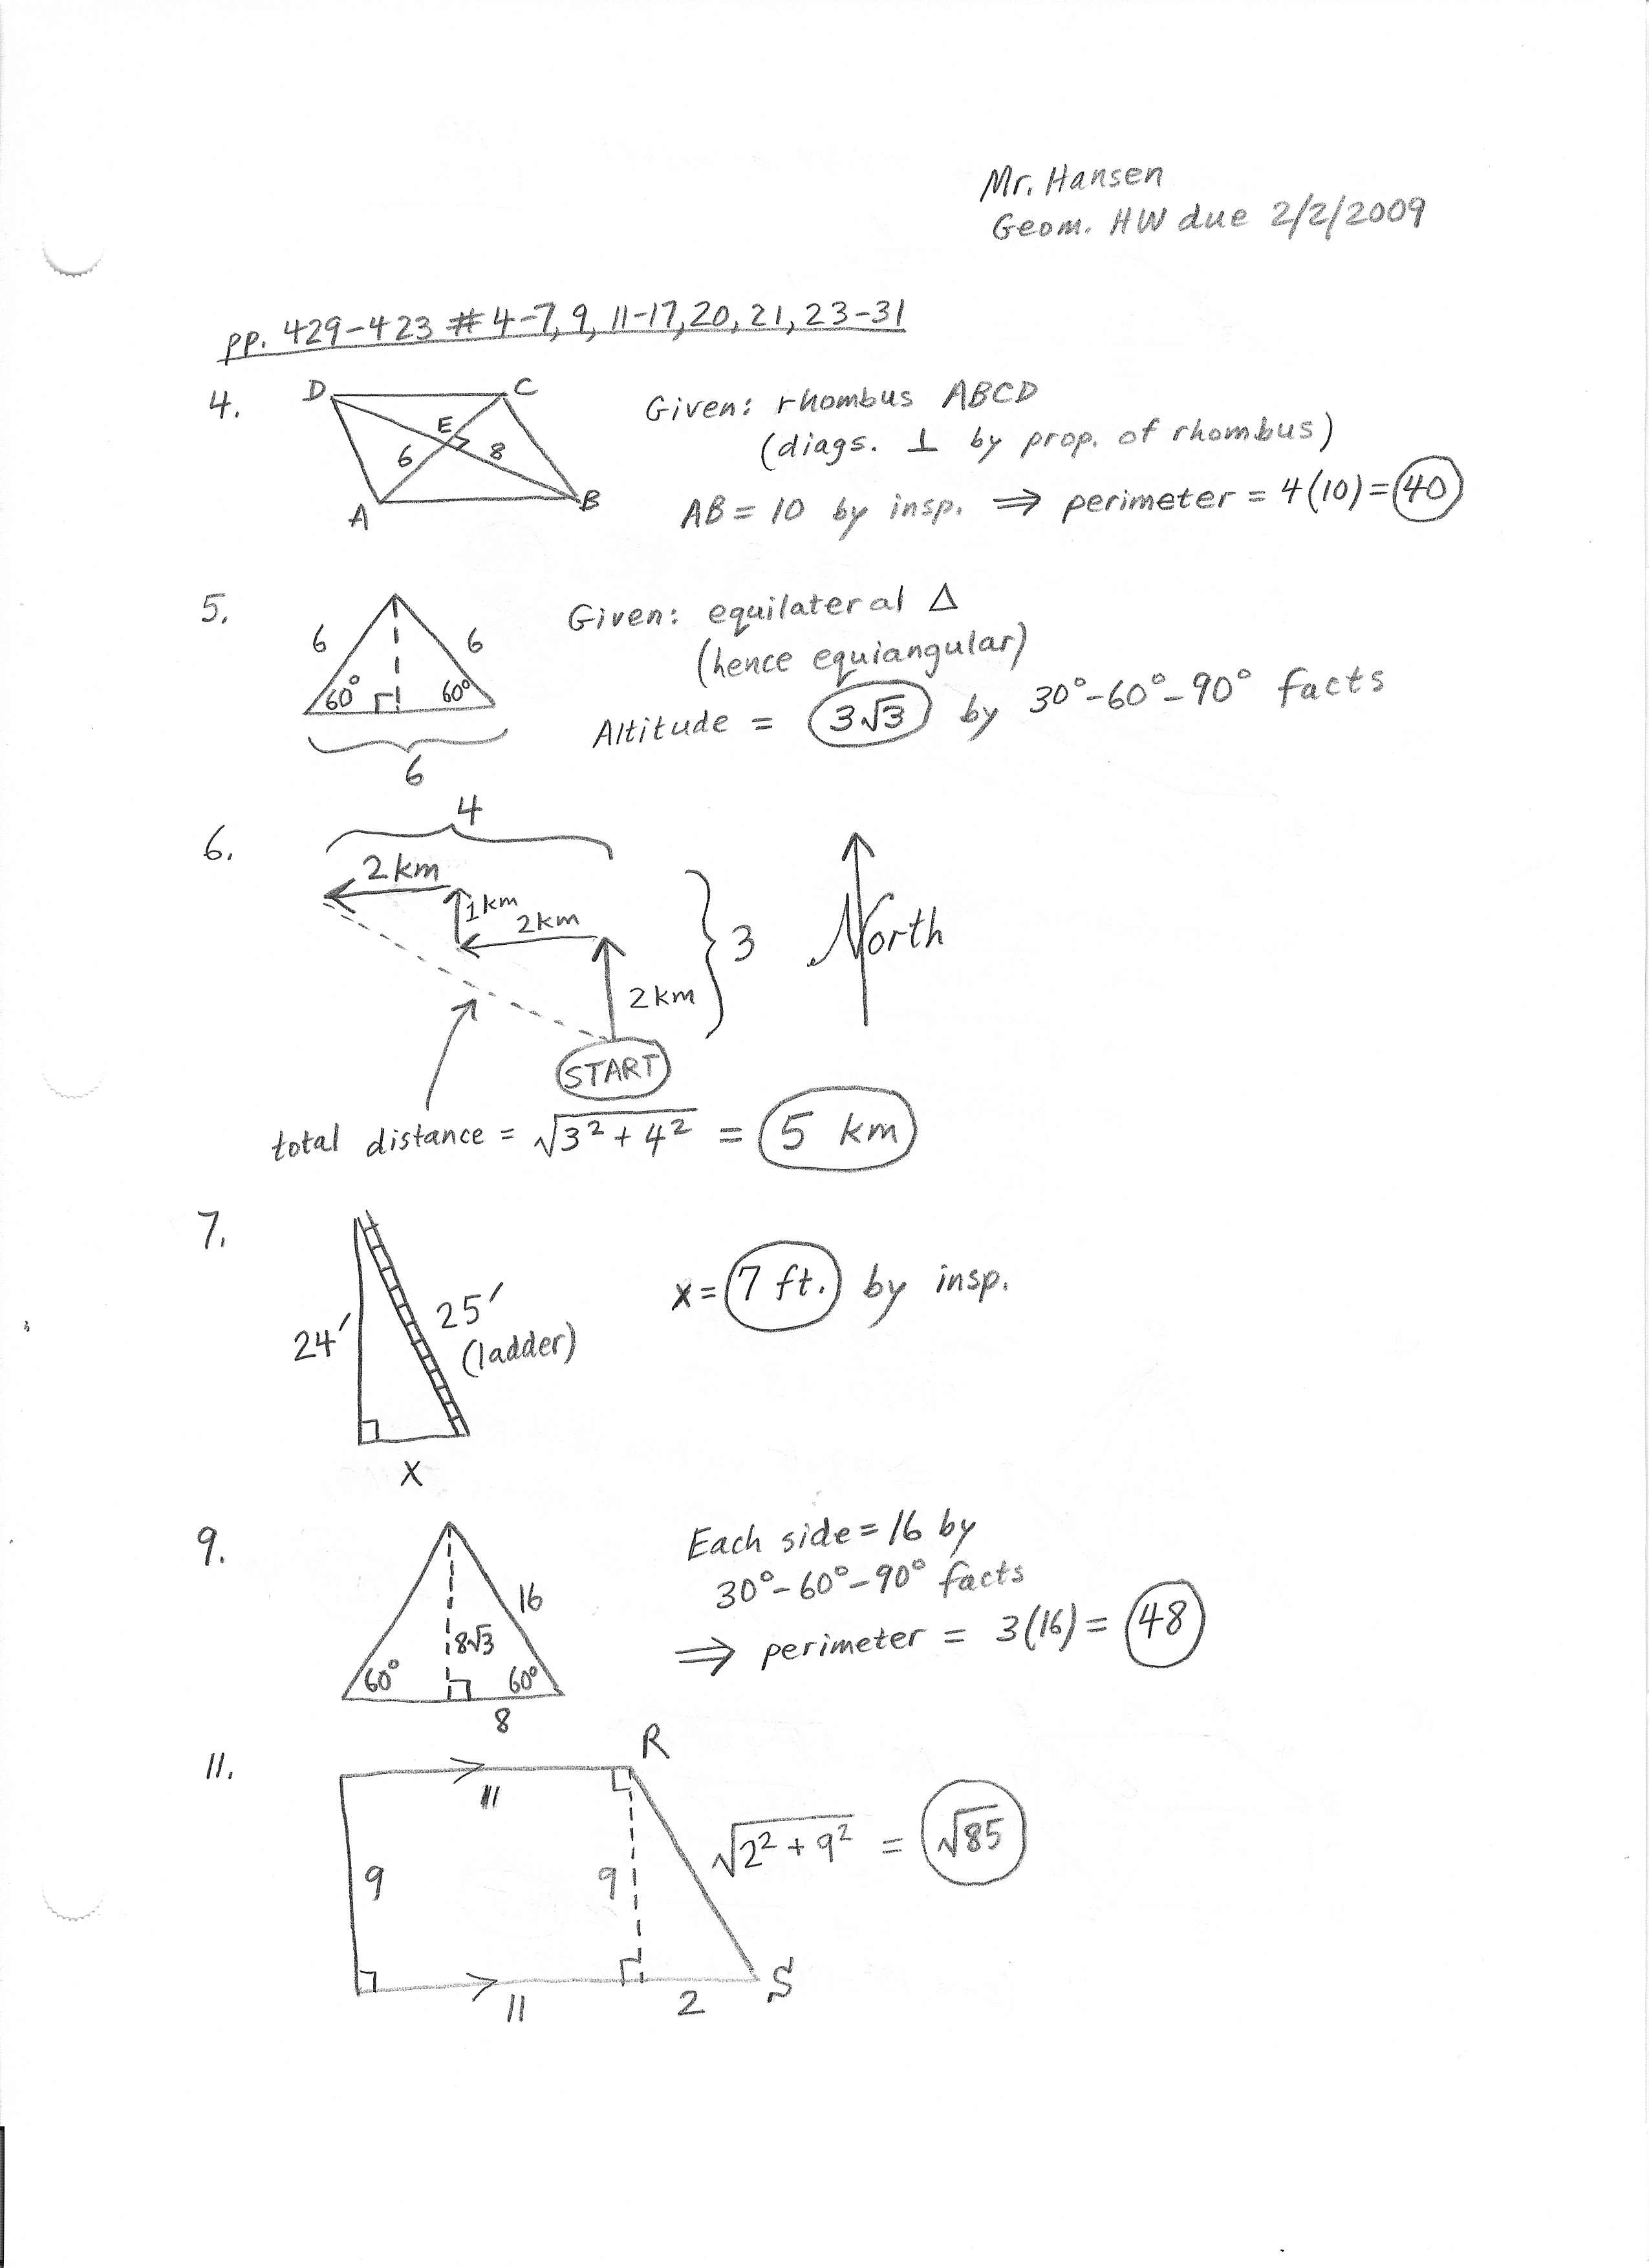 Mr. Hansen
Geom. HW due 2/2/2009
pp. 429-423 # 4-7, 9, 11-17, 20, 21, 23-31
4.
D
C
E
6
8
A
B
Given: rhombus ABCD
(diags. ⊥ by prop. of rhombus)
AB = 10 by insp. ⇒ perimeter = 4(10) = 40
5.
6
6
60°
60°
6
Given: equilateral △
(hence equiangular)
Altitude = 3√3 by 30°-60°-90° facts
6.
4
2km
1km
2km
3
North
2km
START
total distance = √3²+4² = 5 km
7.
24′
25′
(ladder)
x
x = 7 ft. by insp.
9.
16
8√3
60°
60°
8
Each side = 16 by
30°-60°-90° facts
⇒ perimeter = 3(16) = 48
11.
R
11
9
9
√2²+9² = √85
11
2
S